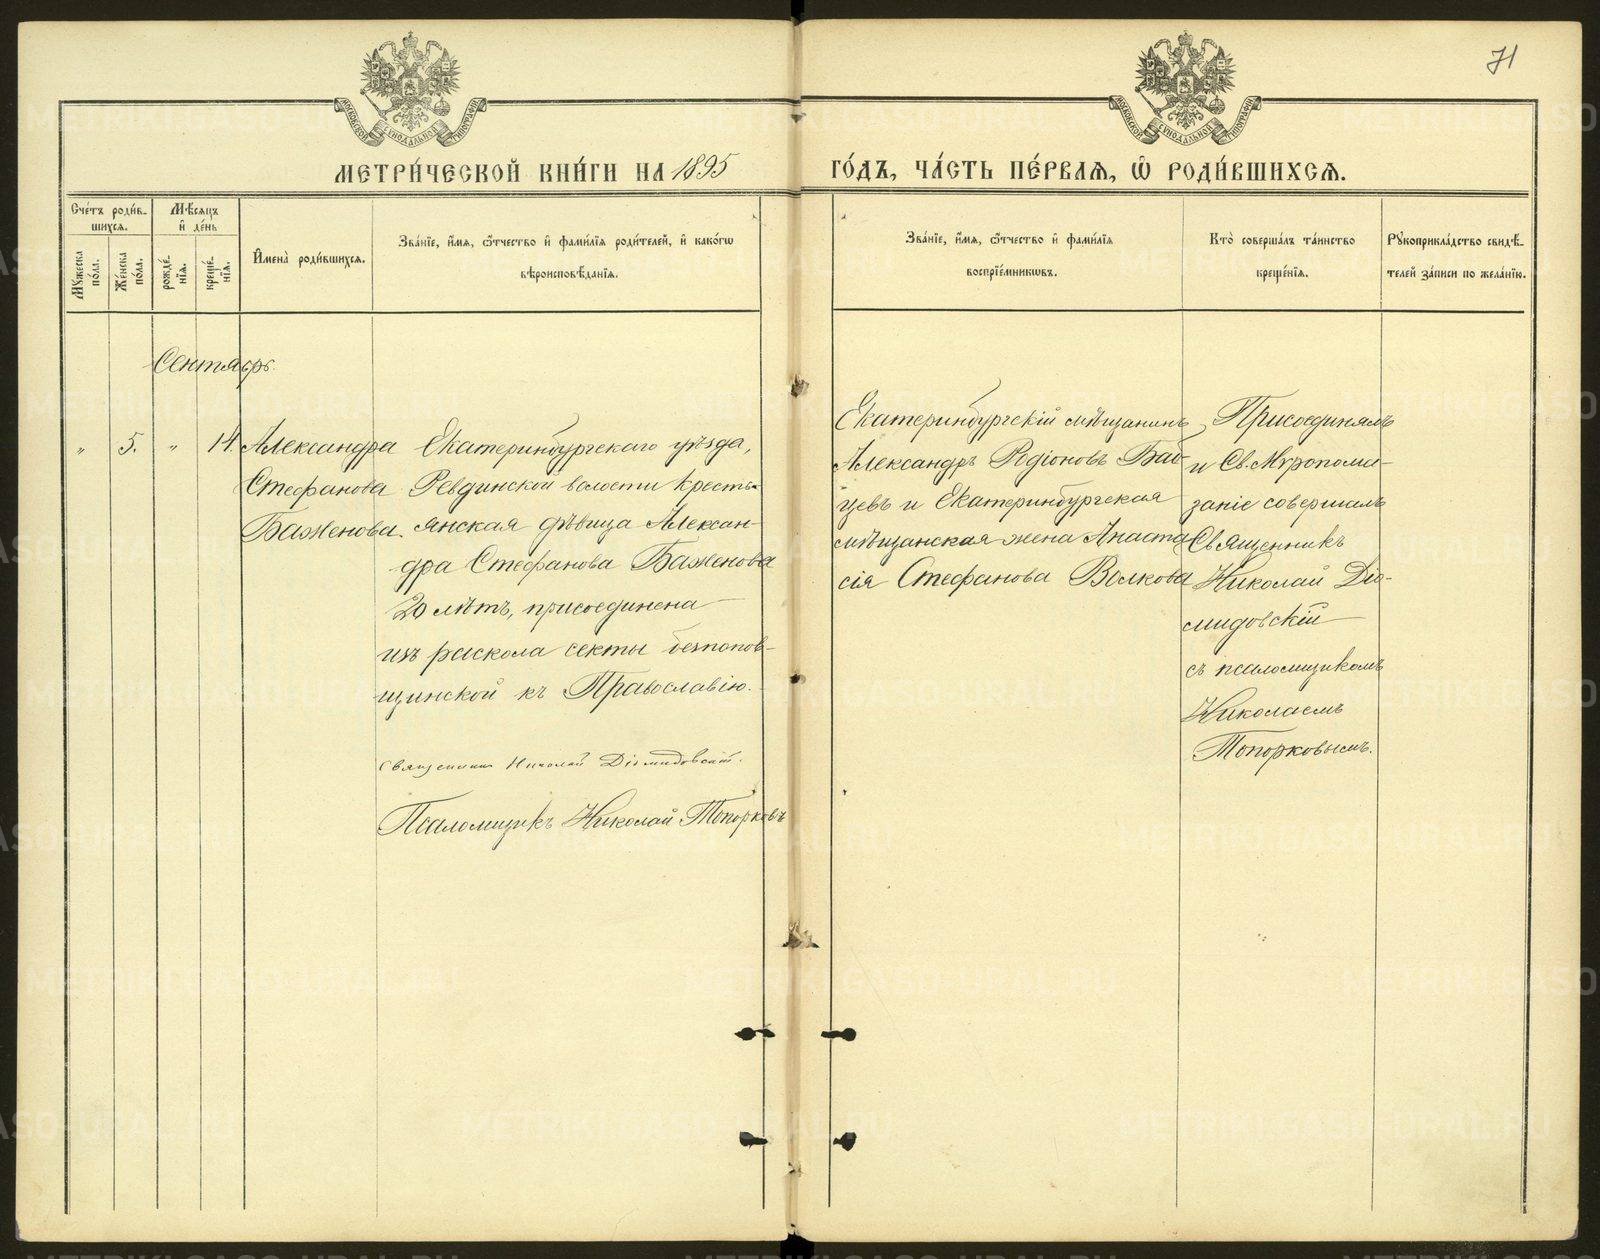 71
МОСКОВСКОЙ СУНОДАЛЬНОЙ ТИПОГРАФІИ
МОСКОВСКОЙ СУНОДАЛЬНОЙ ТИПОГРАФІИ
МЕТРИ́ЧЕСКОЙ КНИ́ГИ НА 1895
ГО́ДЪ, ЧА́СТЬ ПЕ́РВАѦ, Ѿ РОДИ́ВШИХСѦ.
Сче́тъ роди́в-
шихсѧ.
Мѣ́сѧцъ
и҆ де́нь
Мꙋ́жеска
по́ла.
Же́нска
по́ла.
рожде́-
нїѧ.
креще́-
нїѧ.
И҆мена̀ роди́вшихсѧ.
Зва́нїе, и҆́мѧ, ѻ҆́тчество и҆ фами́лїѧ роди́телей, и҆ како́гѡ
вѣроисповѣ́данїѧ.
Зва́нїе, и҆́мѧ, ѻ҆́тчество и҆ фами́лїѧ
воспрїе́мникѡвъ.
Кто̀ соверша́лъ та́инство
креще́нїѧ.
Рꙋкоприкла́дство свидѣ́-
телей за́писи по жела́нїю.
Сентябрь.
" 5. " 14.
Александра
Стефанова
Баженова.
Екатеринбургскаго уѣзда,
Ревдинской волости кресть-
янская дѣвица Алексан-
дра Стефанова Баженова
20 лѣтъ, присоединена
изъ раскола секты безпопов-
щинской къ Православію.
Священникъ Николай Діомидовскій.
Псаломщикъ Николай Топорковъ
Екатеринбургскій мѣщанинъ
Александръ Родіоновъ
и Екатеринбургская
мѣщанская жена Анаста-
сія Стефанова Волкова
Присоединялъ
и Св. Мѵропома-
заніе совершалъ
Священникъ
Николай Діо-
мидовскій
съ псаломщикомъ
Николаемъ
Топорковымъ.
METRIKI.GASO-URAL.RU